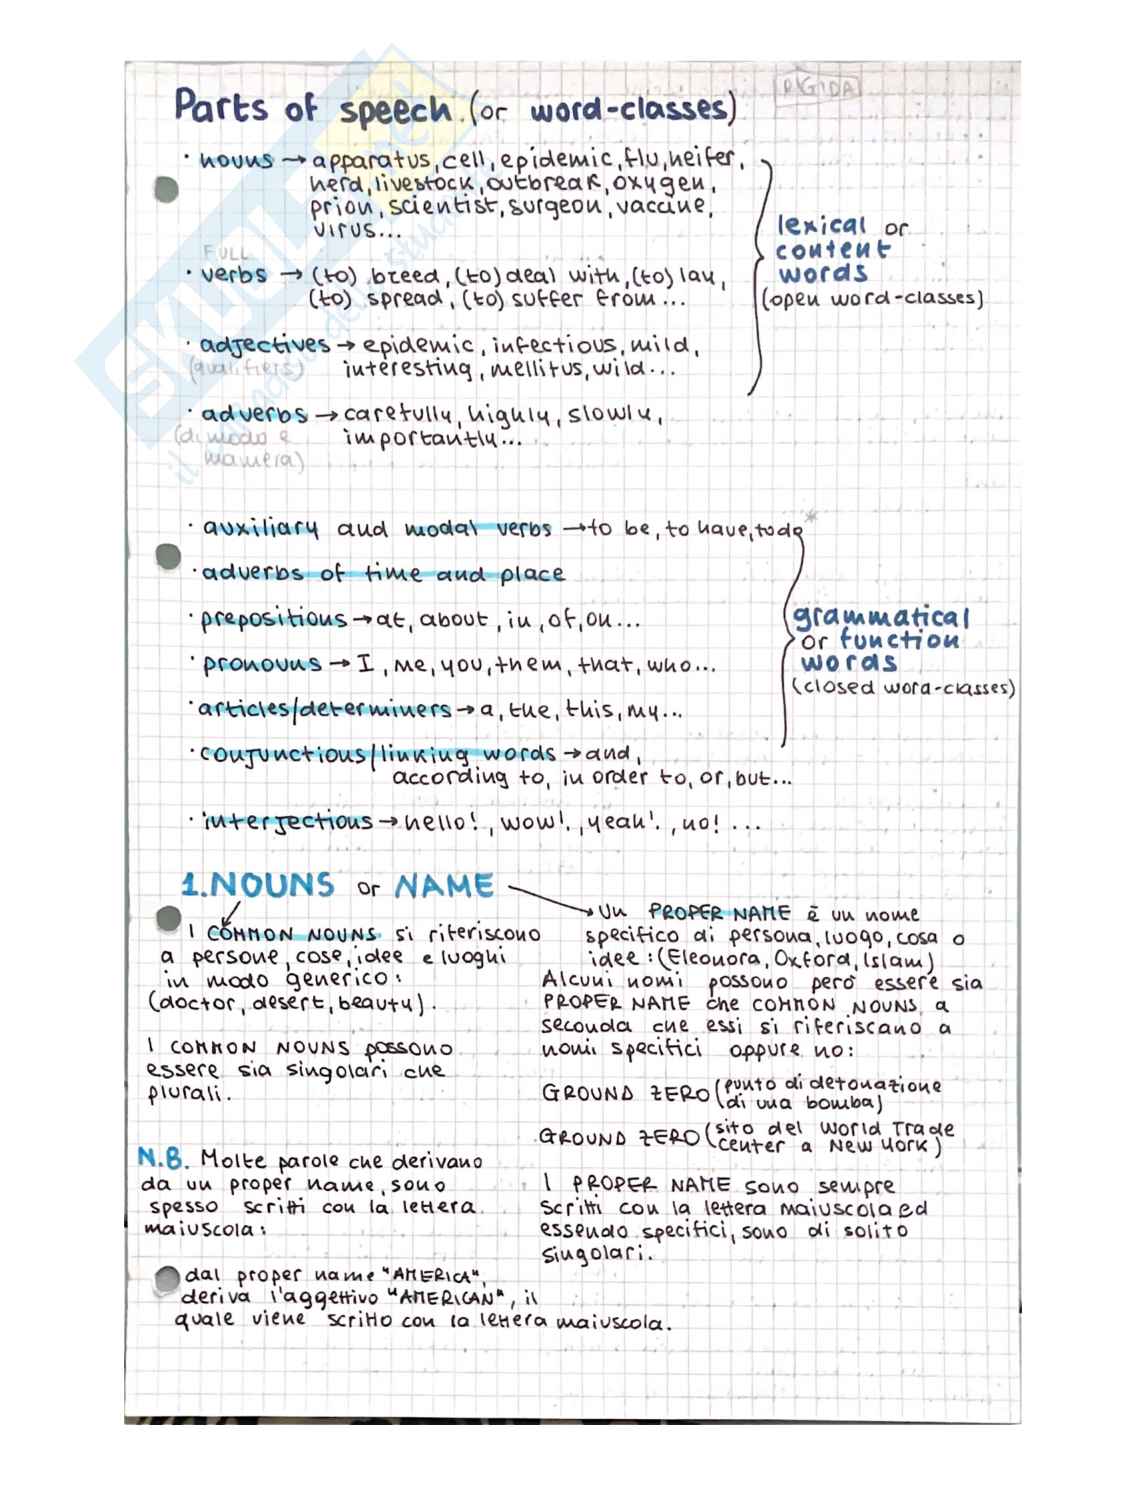 RIGIDA
Parts of speech (or word-classes)
· nouns → apparatus, cell, epidemic, flu, heifer,
herd, livestock, outbreak, oxygen,
prion, scientist, surgeon, vaccine,
virus...
FULL
· verbs → (to) breed, (to) deal with, (to) lay,
(to) spread, (to) suffer from...
lexical or
content
words
(open word-classes)
· adjectives → epidemic, infectious, mild,
(qualifiers) interesting, mellitus, wild...
· adverbs → carefully, highly, slowly,
(di modo e importantly...
maniera)
· auxiliary and modal verbs → to be, to have, to do*
· adverbs of time and place
· prepositions → at, about, in, of, on...
· pronouns → I, me, you, them, that, who...
· articles/determiners → a, the, this, my...
· conjunctions/linking words → and,
according to, in order to, or, but...
grammatical
or function
words
(closed word-classes)
· interjections → hello!, wow!, yeah!, no! ...
1. NOUNS or NAME
I COMMON NOUNS si riferiscono
a persone, cose, idee e luoghi
in modo generico:
(doctor, desert, beauty).
I COMMON NOUNS possono
essere sia singolari che
plurali.
N.B. Molte parole che derivano
da un proper name, sono
spesso scritti con la lettera
maiuscola:
dal proper name "AMERICA",
deriva l'aggettivo "AMERICAN", il
quale viene scritto con la lettera maiuscola.
→ Un PROPER NAME è un nome
specifico di persona, luogo, cosa o
idee: (Eleonora, Oxford, Islam)
Alcuni nomi possono però essere sia
PROPER NAME che COMMON NOUNS, a
seconda che essi si riferiscano a
nomi specifici oppure no:
GROUND ZERO (punto di detonazione
di una bomba)
GROUND ZERO (sito del World Trade
Center a New York)
I PROPER NAME sono sempre
scritti con la lettera maiuscola ed
essendo specifici, sono di solito
singolari.